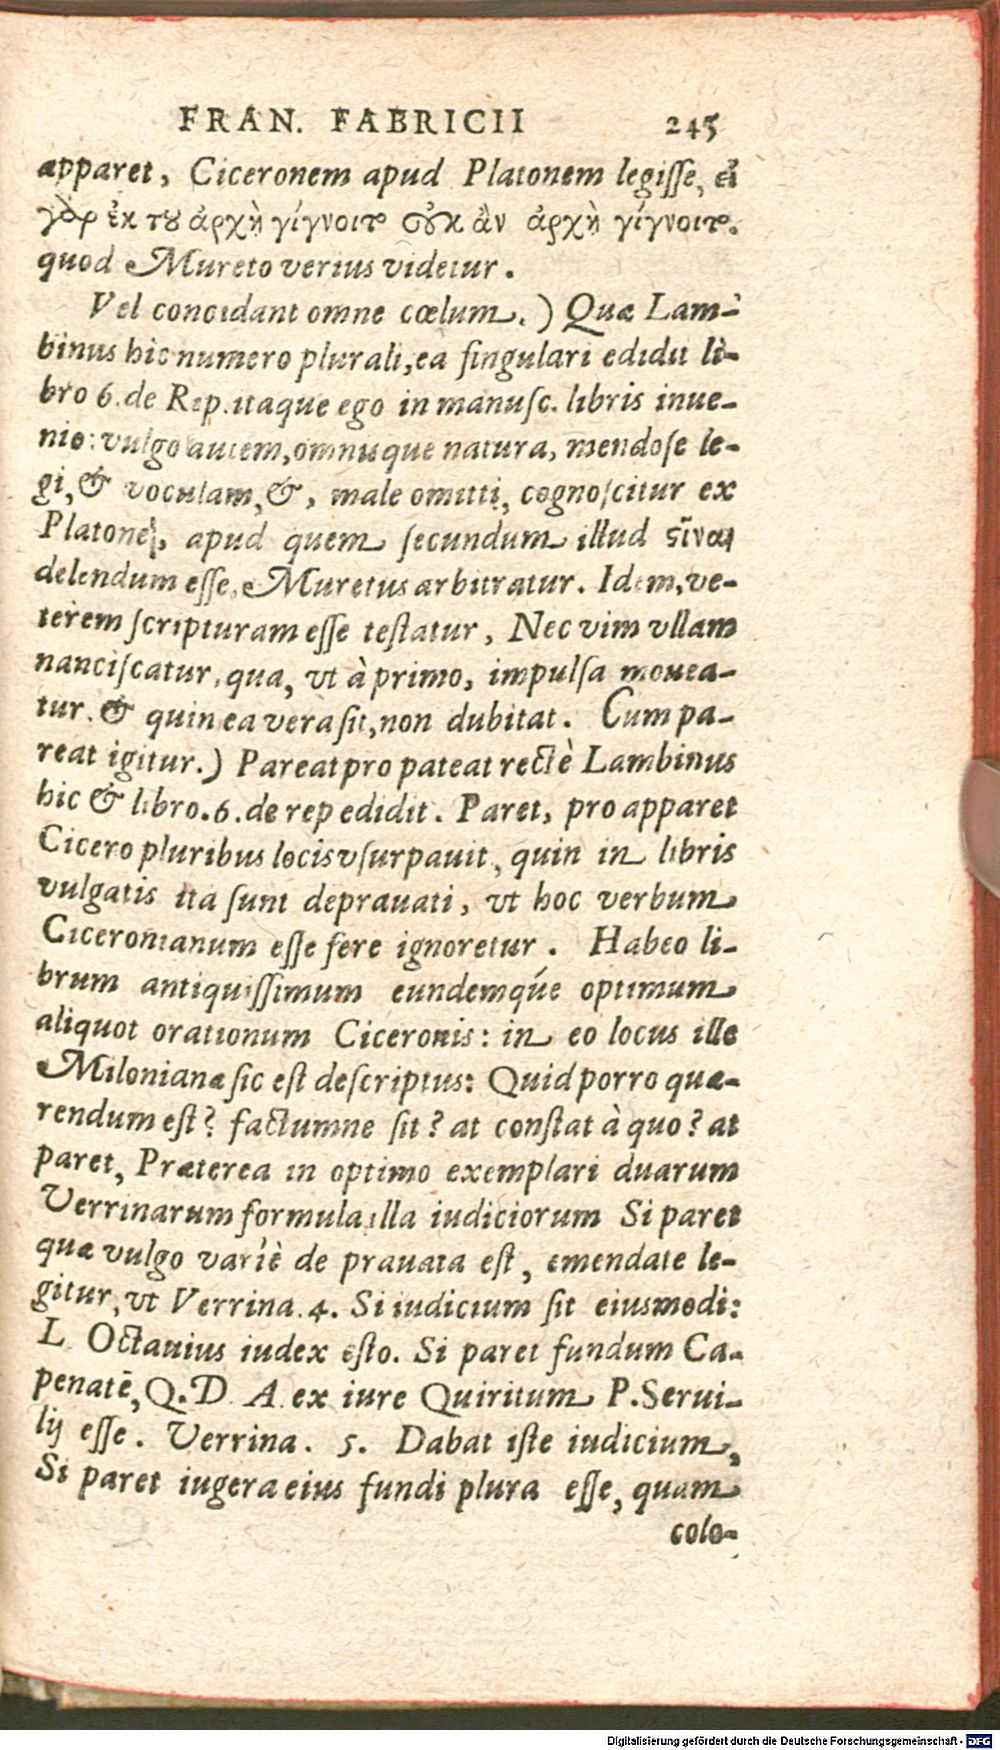 FRAN. FABRICII 245
apparet, Ciceronem apud Platonem legisse, εἰ
γὸρ ἐκ του ἀρχὴ γίγνοιτο οὐκ ἂν ἀρχὴ γίγνοιτο.
quod Mureto verius videtur.
Vel concidant omne cœlum.) Quæ Lam-
binus hic numero plurali, ea singulari edidit li-
bro 6. de Rep. itaque ego in manusc. libris inue-
nio: vulgo autem, omnisque natura, mendose le-
gi, & voculam, &, male omitti, cognoscitur ex
Platone, apud quem secundum illud εἶναι
delendum esse, Muretus arbitratur. Idem, ve-
terem scripturam esse testatur, Nec vim vllam
nanciscatur, qua, vt à primo, impulsa mouea-
tur. & quin ea vera sit, non dubitat. Cum pa-
reat igitur.) Pareat pro pateat rectè Lambinus
hic & libro. 6. de rep edidit. Paret, pro apparet
Cicero pluribus locis vsurpauit, quin in libris
vulgatis ita sunt deprauati, vt hoc verbum
Ciceronianum esse fere ignoretur. Habeo li-
brum antiquissimum eundemqúe optimum
aliquot orationum Ciceronis: in eo locus ille
Milonianæ sic est descriptus: Quid porro quæ-
rendum est? factumne sit? at constat à quo? at
paret, Præterea in optimo exemplari duarum
Verrinarum formula illa iudiciorum Si paret
quæ vulgo variè de prauata est, emendate le-
gitur, vt Verrina. 4. Si iudicium sit eiusmodi:
L. Octauius iudex esto. Si paret fundum Ca-
penatē, Q. D. A. ex iure Quiritum P. Serui-
lij esse. Verrina. 5. Dabat iste iudicium,
Si paret iugera eius fundi plura esse, quam
colo-
Digitalisierung gefördert durch die Deutsche Forschungsgemeinschaft - DFG